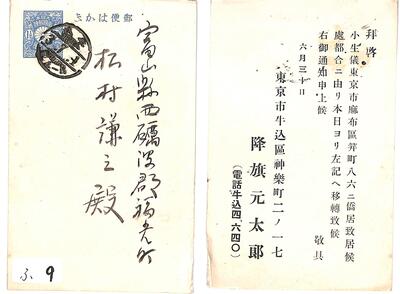 郵便はかき
富山縣西礪波郡福光町
松村謙三殿
ふ 9
拜啓
小生儀東京市麻布區笄町八六ニ僑居致居候
處都合ニ由リ本日ヨリ左記へ移轉致候
右御通知申上候
敬具
六月三十日
東京市牛込區神樂町二ノ一七
降旗元太郎
(電話牛込四、六四〇)